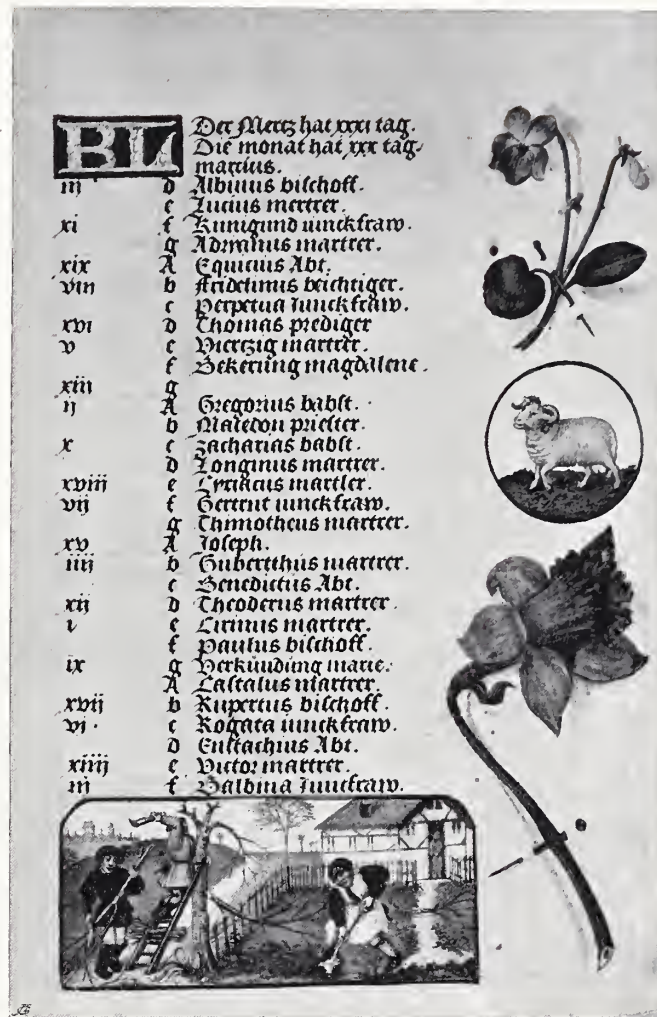 BL Der Mertz hat xxxi tag.
Die monat hat xxx tag.
martius.
iij d Albinus bischoff.
e Lucius mertrer.
xi f Kunigund iunckfraw.
g Adrianus martrer.
xix A Equicius Abt.
viii b Fridelinus beichtiger.
c Perpetua Junckfraw.
xvi d Thomas prediger
v e Viertzig martrer.
f Bekerung magdalene.
xiii g
ij A Gregorius babst.
b Macedon priester.
x c Zacharias babst.
d Longinus martrer.
xviii e Cyriacus martler.
vij f Gertrut iunckfraw.
g Thimotheus martrer.
xv A Joseph.
iiij b Gubertthus martrer.
c Benedictus Abt.
xij d Theoderus martrer.
i e Cirinus martrer.
f Paulus bischoff.
ix g Verkundung marie.
A Castalus martrer.
xvij b Rupertus bischoff.
vi c Rogata iunckfraw.
d Eustachius Abt.
xiiij e Victor martrer.
iij f Balbina Junckfraw.